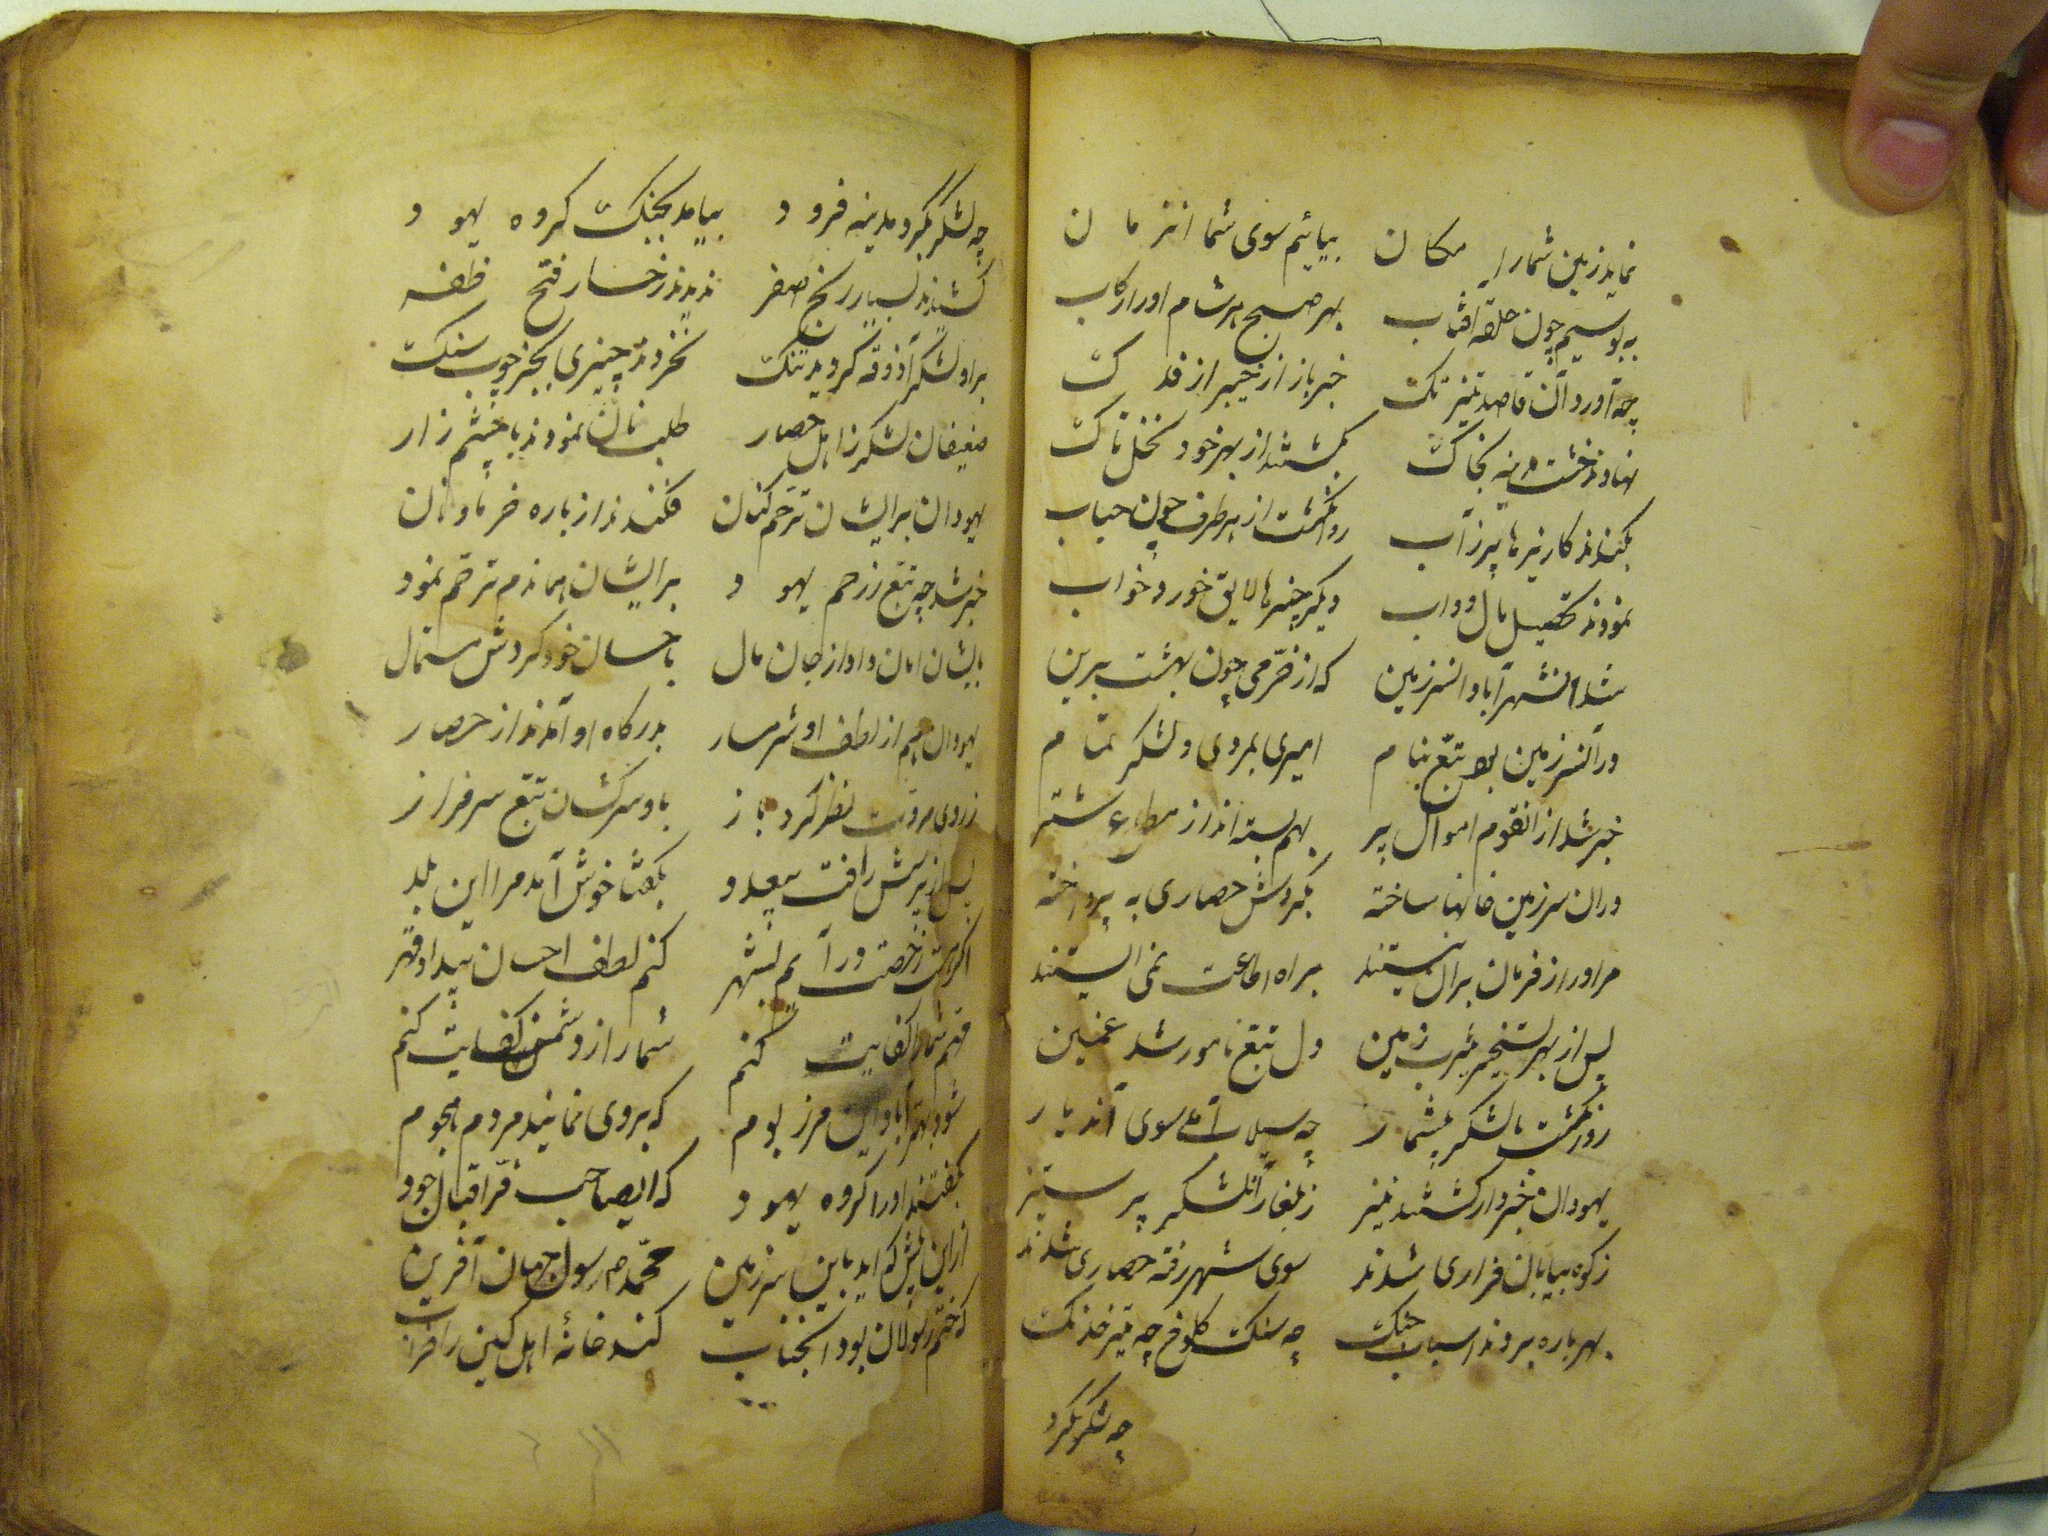 نماید زمین شما را مکان بیاییم سوی شما انزمان
به بوسیم چون حلقه افتاب بهر صبح هر شام او را رکاب
چه آورد آن قاصد تیز تک خبر باز از خیبر از فدک
نهادند خشت مدینه بخاک بکشتند از بهر خود نخل تاک
بکندند کاریزها پر ز آب روانکشت از هر طرف چون حباب
نمودند تحصیل مال دواب دیکر چیزها لایق خورد و خواب
شد انشهر آباد انسرزمین که از خرمی چون بهشت برین
در آنسرزمین بود تبع بنام امیری بمردی و لشکر تمام
خبر شد از انقوم اموال پر بهم بسته اند از شتر
در ان سرزمین خانها ساخته بکردش حصاری به پرداخته
مر او را ز فرمان بران نیستند براه اطاعت نمی ایستند
پس از بهر تسخیر یثرب زمین دل تبع نامور شد غمین
روانکشت با لشکر بیشمار چه سیلاب آمد سوی آندیار
یهودان خبردار کشتند نیز ز یلغار آنلشکر پر ستیز
ز کوه بیابان فراری شدند سوی شهر رفته حصاری شدند
بهر باره بردند اسباب جنک چه سنک کلوخ چه تیر خدنک
چه لشکر بکرد
چه لشکر بکرد مدینه فرود بیامد بجنک کروه یهود
کشیدند بسیار رنج ندیدند رخسار فتح ظفر
بر او لشکر آذوقه کردید تنک نخوردند چیزی بجز چوب سنک
ضعیفان لشکر ز اهل حصار طلب نان نمودند با چشم زار
یهودان بر ایشان ترحم کنان فکندند از باره خرما و نان
خبر شد چه تبع ز رحم یهود بر ایشان هماندم ترحم نمود
بایشان امان داد از جان مال باحسان خود کردش مستمال
یهودان هم از لطف او شرمسار بدرکاه او آمدند از حصار
ز روی مروت نظر کرد باز باو سرکشان تبع سرفراز
پس از پرسش رافت بیعدد بکفتا خوش آمد مرا این بلد
اکر هست رخصت در آیم بشهر کنم لطف احسان بیداد قهر
مهم شما را کفایت کنم شما را ز دشمن کفایت کنم
شود بهتر آباد این مرز بوم که بر وی نمایند مردم هجوم
بکفتند او را کروه یهود که ایصاحب فر اقبال جود
از این پیش که اید باین سرزمین محمد م رسول جهان آفرین
که ختم رسولان بود انجناب کند خانهٔ اهل کین را خراب